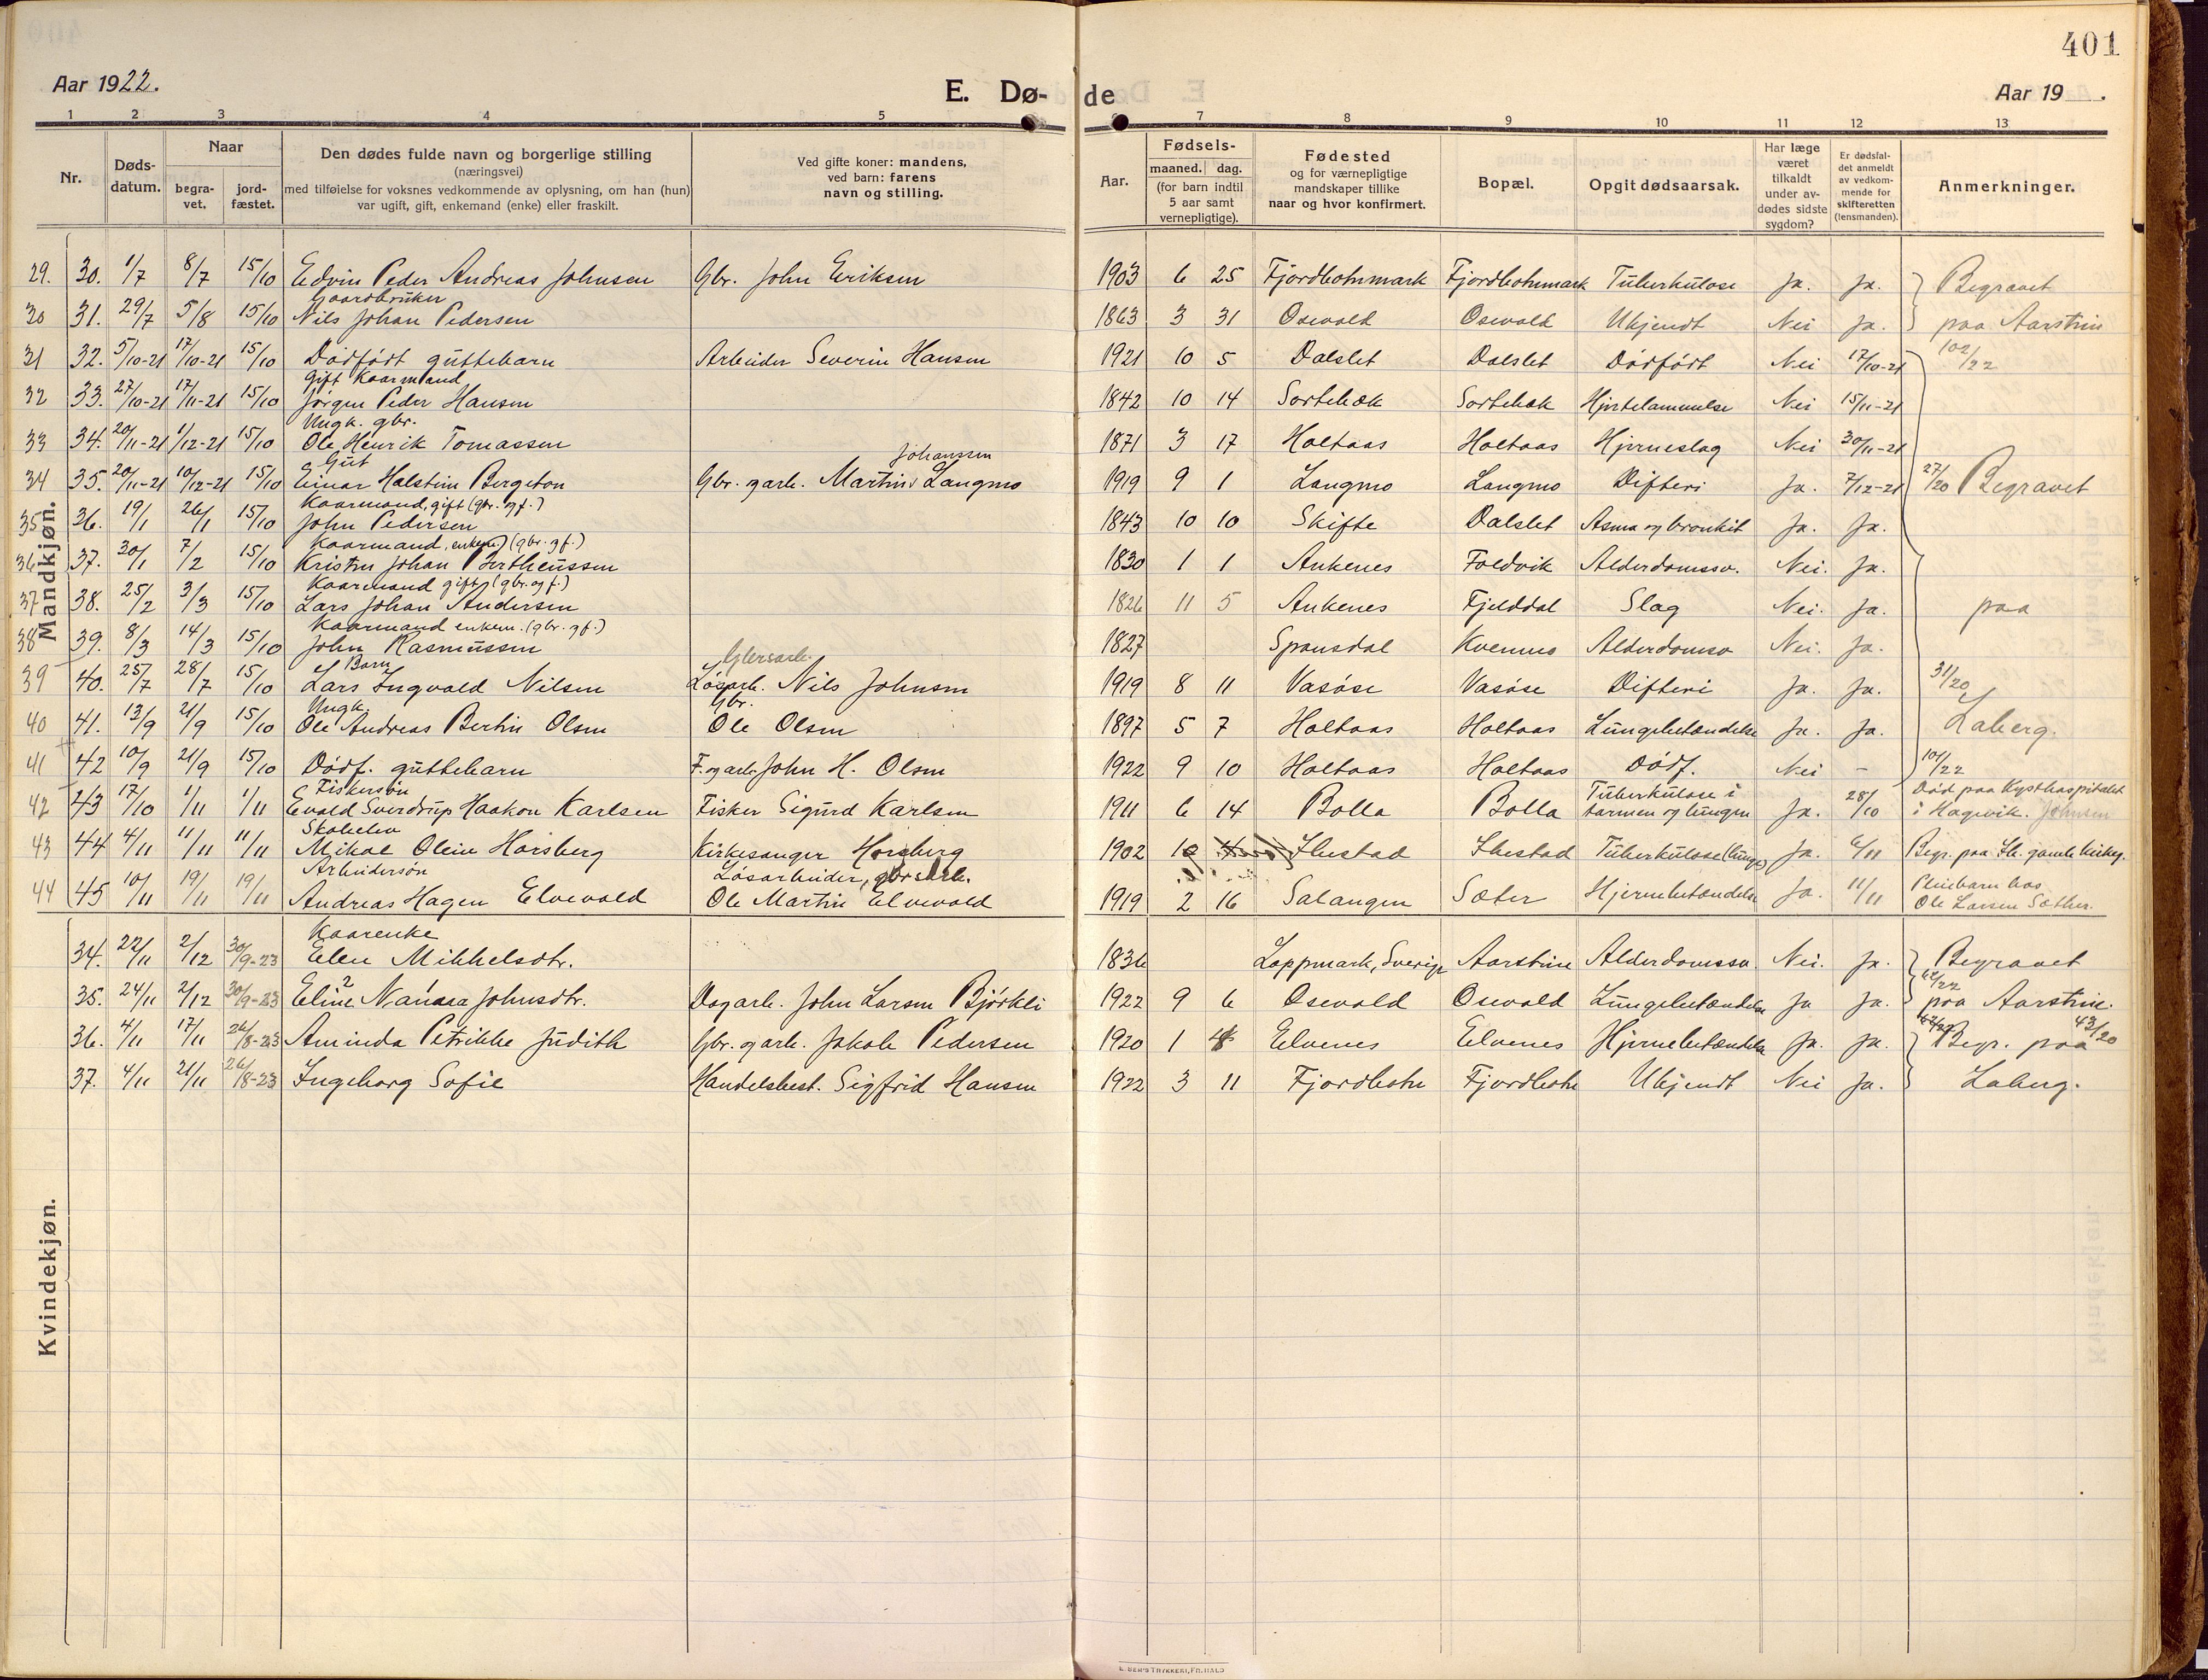 401
Aar 1922.
E. Dø-
de
Aar 19 .
1 2 3 4 5 7 8 9 10 11 12 13
Nr.
Døds-
datum.
Naar
begra-
vet.
jord-
fæstet.
Den dødes fulde navn og borgerlige stilling
(næringsvei)
med tilføielse for voksnes vedkommende av oplysning, om han (hun)
var ugift, gift, enkemand (enke) eller fraskilt.
Ved gifte koner: mandens,
ved barn: farens
navn og stilling.
Aar.
Fødsels-
maaned. dag.
(for barn indtil
5 aar samt
vernepligtige).
Fødested
og for værnepligtige
mandskaper tillike
naar og hvor konfirmert.
Bopæl.
Opgit dødsaarsak.
Har læge
været
tilkaldt
under av-
dødes sidste
sygdom?
Er dødsfal-
det anmeldt
av vedkom-
mende for
skifteretten
(lensmanden).
Anmerkninger.
Mandkjøn.
29. 30. 1/7 8/7 15/10 Edvin Peder Andreas Johnsen Gbr. John Eriksen 1903 6 25 Fjordbotnmark Fjordbotnmark Tuberkulose Ja. Ja. Begravet
Gaardbruker
30 31. 29/7 5/8 15/10 Nils Johan Pedersen 1863 3 31 Osevold Osevold Ukjendt Nei Ja. paa Aarstein
31 32. 5/10-21 17/10-21 15/10 Dødfødt guttebarn Arbeider Severin Hansen 1921 10 5 Dalslet Dalslet Dødfødt Nei 17/10-21 102/22
Gift Kaarmand
32 33. 27/10-21 17/11-21 15/10 Jørgen Peder Hansen 1842 10 14 Sortebæk Sortebæk Hjertelammelse Nei 15/11-21
Ungk. gbr.
33 34. 20/11-21 1/12-21 15/10 Ole Henrik Tomassen 1871 3 17 Holtaas Holtaas Hjerneslag Nei 30/11-21
Gut Johanssen
34 35. 20/11-21 10/12-21 15/10 Einar Halstein Bergeton Gbr. garb. Martin Langmo 1919 9 1 Langmo Langmo Difteri Ja. 7/12-21 27/20 Begravet
Kaarmand, gift (gbr. og f.)
35 36. 19/1 26/1 15/10 John Pedersen 1843 10 10 Skifte Dalslet Asma og bronkit Ja. Ja.
Kaarmand, enkem.) (gbr. gf.)
36 37. 30/1 7/2 15/10 Kristen Johan Bertheussen 1830 1 1 Ankenes Foldvik Alderdomssv. Nei. Ja.
Kaarmand gift) (gbr. og f.)
37 38. 25/2 3/3 15/10 Lars Johan Andersen 1826 11 5 Ankenes Fjelddal Slag Nei. Ja. paa
Kaarmand enkem. (gbr. gf.)
38 39. 8/3 14/3 15/10 John Rasmussen 1827 Spansdal Kvernmo Alderdomsv Nei. Ja.
Barn
39 40. 25/7 28/7 15/10 Lars Ingvald Nilsen Løsarb. Nils Johnsen 1919 8 11 Vasøse Vasøse Difteri Ja. Ja. 31/20
Ungk. Gbr.
40 41. 13/9 21/9 15/10 Ole Andreas Bertin Olsen Ole Olsen 1897 5 7 Holtaas Holtaas Lungebetændelse Ja. Ja. Laberg.
41 42 10/9 21/9 15/10 Dødf. guttebarn F. og arb. John H. Olsen 1922 9 10 Holtaas Holtaas Dødf. Nei – 104/22
Fiskersøn Tuberkulose i Død paa Kysthospitalet
42 43 17/10 1/11 1/11 Evald Sverdrup Haakon Karlsen Fisker Sigurd Karlsen 1911 6 14 Bolla Bolla tarmen og lungen Ja. 28/10 i Hagevik. Johnsen
Skoleelev
43 44 4/11 11/11 11/11 Mikal Olein Horsberg Kirkesanger Horsberg 1902 10 Ibestad Ibestad Tuberkulose (lunge) Ja. 6/11 Begr. paa Ib. gamle kirkeg.
Arbeidersøn Løsarbeider, gbrsarb. Pleiebarn hos
44 45 10/11 19/11 19/11 Andreas Hagen Elvevold Ole Martin Elvevold 1919 2 16 Salangen Sæter Hjernebetændelse Ja. 11/11 Ole Larsen Sæther.
Kvindekjøn.
Kaarenke
34. 22/11 2/12 30/9-23 Elen Mikkelsdtr. 1836 Lappmark, Sverige Aarstein Alderdomssv. Nei. Ja. Begravet
35. 24/11 2/12 30/9-23 Eline Nanna Johnsdtr. Dagarb. John Larsen Bjørkli 1922 9 6 Osevold Osevold Lungebetændelse Ja Ja. paa Aarstein.
36. 4/11 17/11 26/8-23 Aminda Petrikke Judith Gbr. og arb. Jakob Pedersen 1920 1 Elvenes Elvenes Hjernebetændelse Ja. Ja. Begr. paa 43/20
37. 4/11 21/11 26/8-23 Ingeborg Sofie Handelsbest. Sigfrid Hansen 1922 3 11 Fjordbotn Fjordbotn Ukjendt Nei Ja. Laberg.